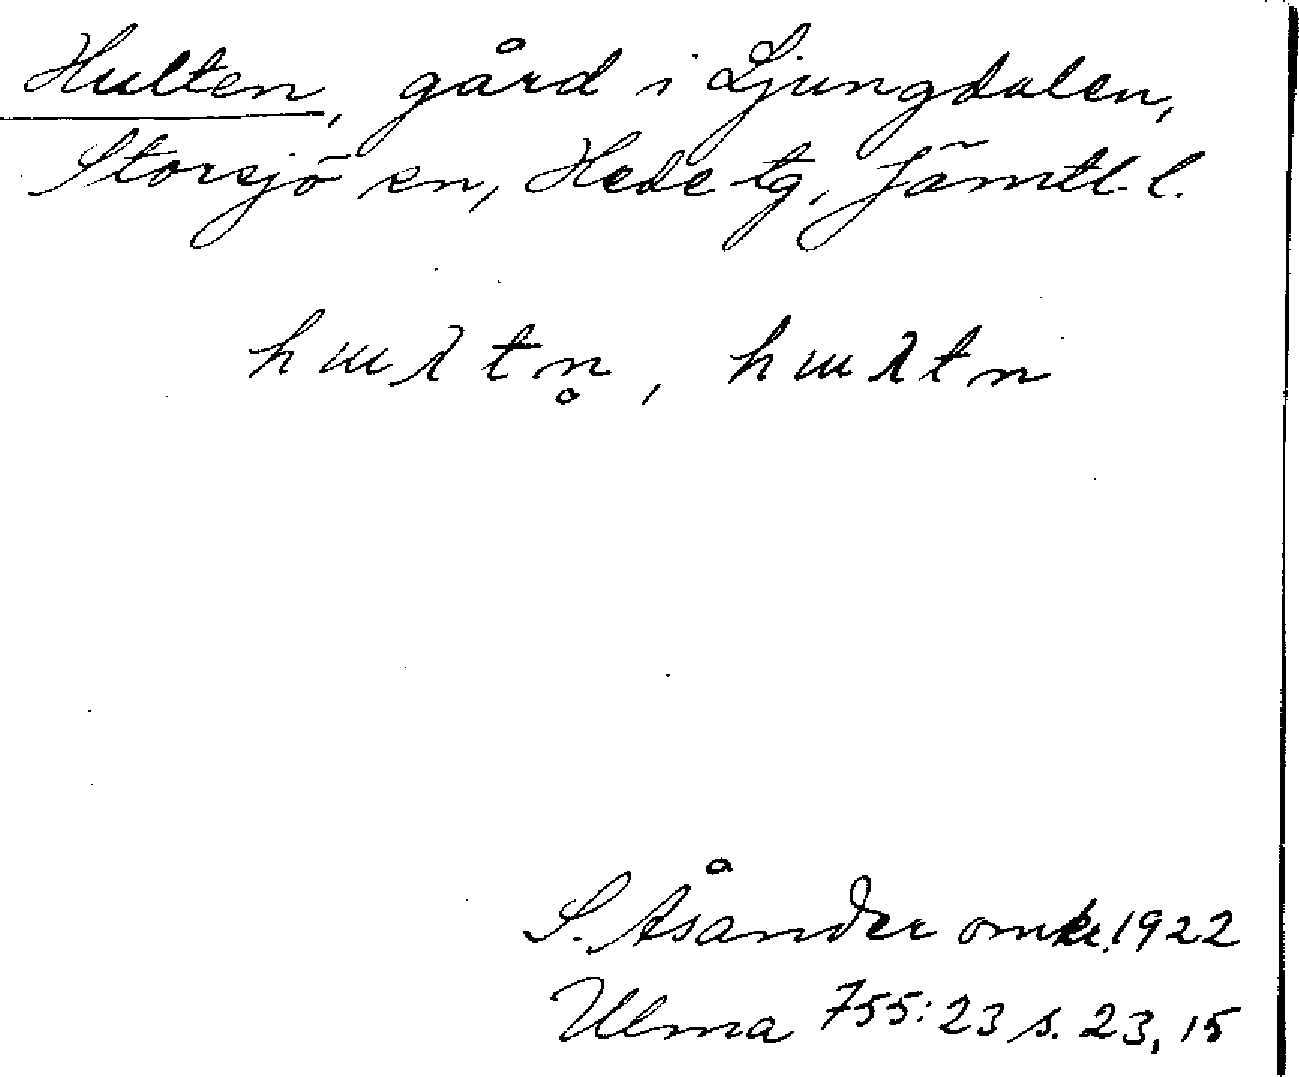 Hulten, gård i Ljungdalen,
Storsjö sn, Hede tg, Jämtl. l.
hɯλtn̥, hɯλtn
S. Åsander omkr. 1922
Ulma 755:23 s. 23, 15